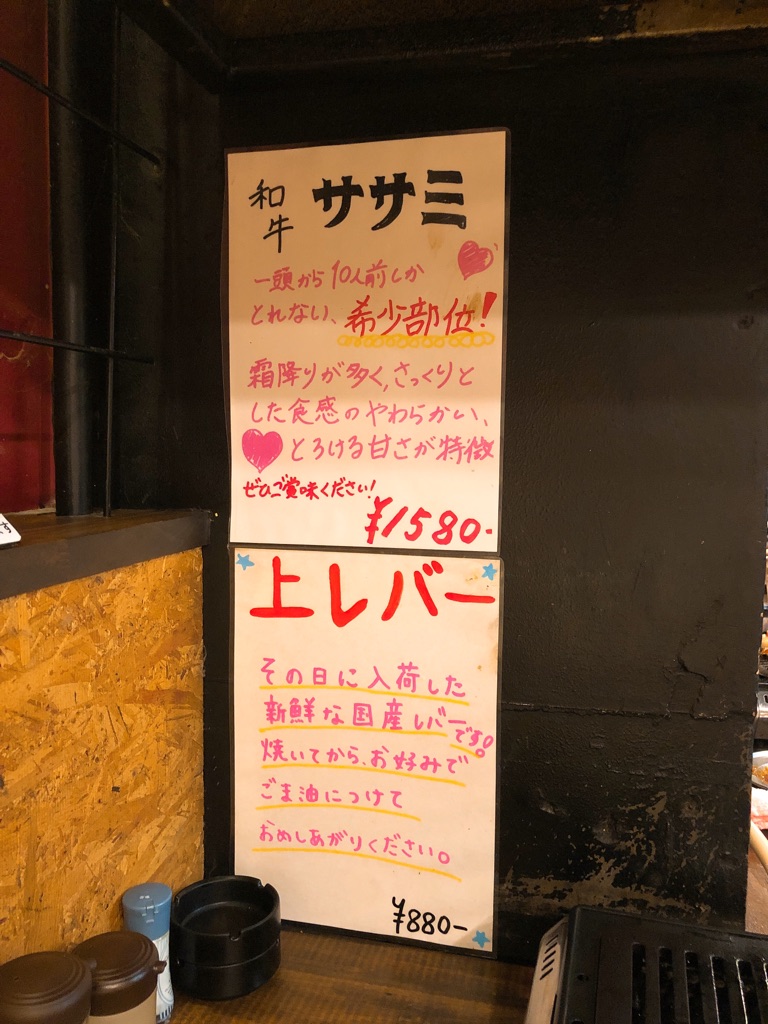 和牛 ササミ
一頭から10人前しか
とれない、希少部位!
霜降りが多く、さっくりと
した食感のやわらかい、
とろける甘さが特徴
ぜひご賞味ください!
¥1580-
上レバー
その日に入荷した
新鮮な国産レバーです!
焼いてから、お好みで
ごま油につけて
おめしあがりください。
¥880-